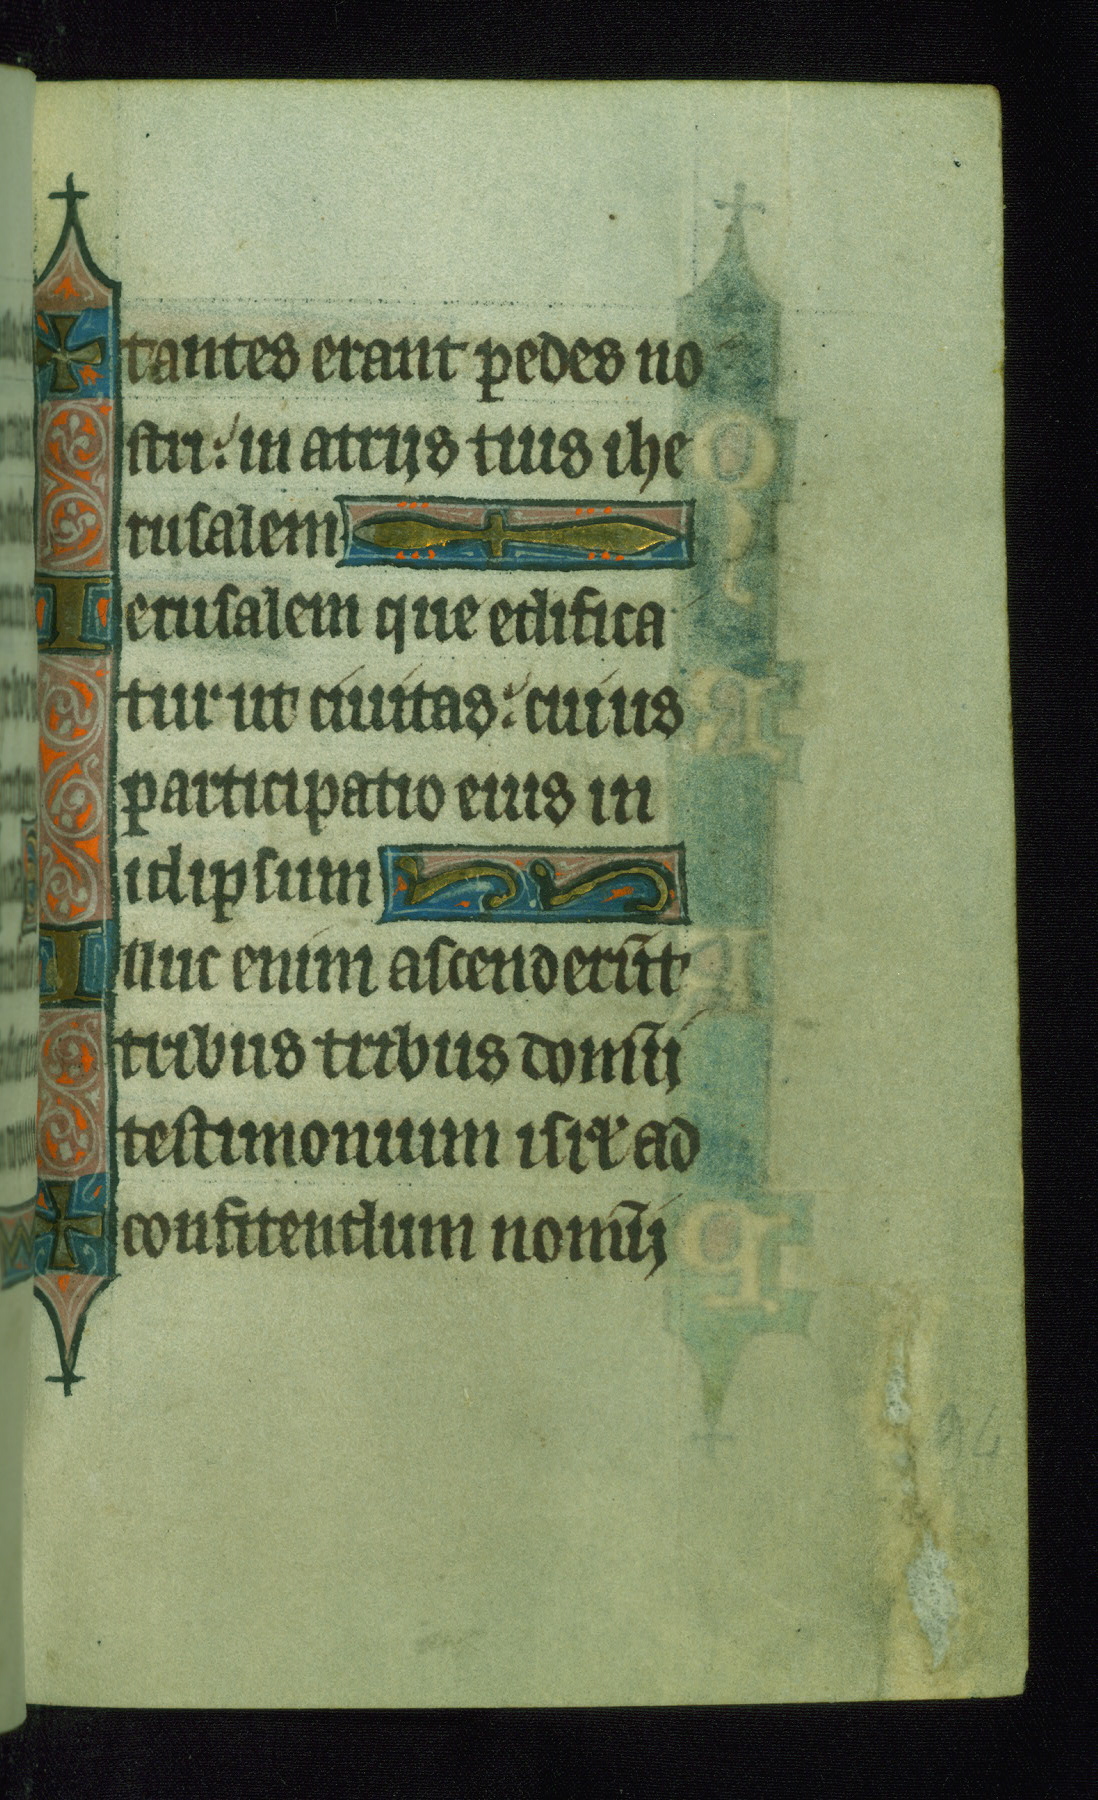 tantes erant pedes no
stri: in atrijs tuis ihe
rusalem
Ierusalem que edifica
tur ut ciuitas: cuius
participatio eius in
idipsum
Illuc enim ascenderūt
tribus tribus domīi
testimonium isrł ad
confitendum nomīi
94